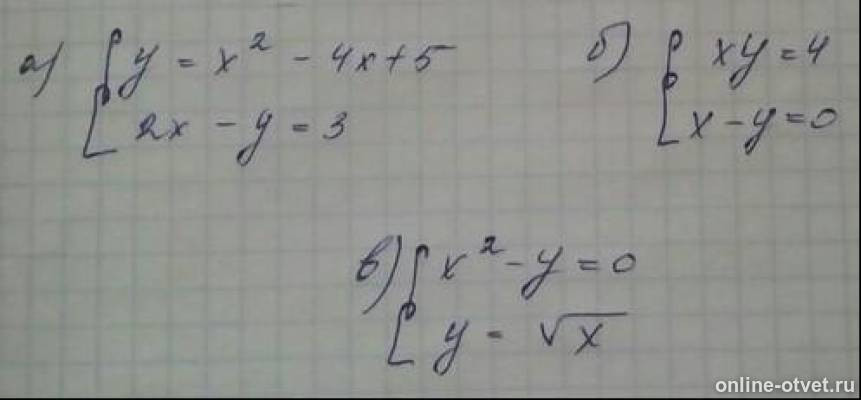 а) { y = x² - 4x + 5
2x - y = 3
б) { xy = 4
x - y = 0
в) { x² - y = 0
y = √x
online-otvet.ru